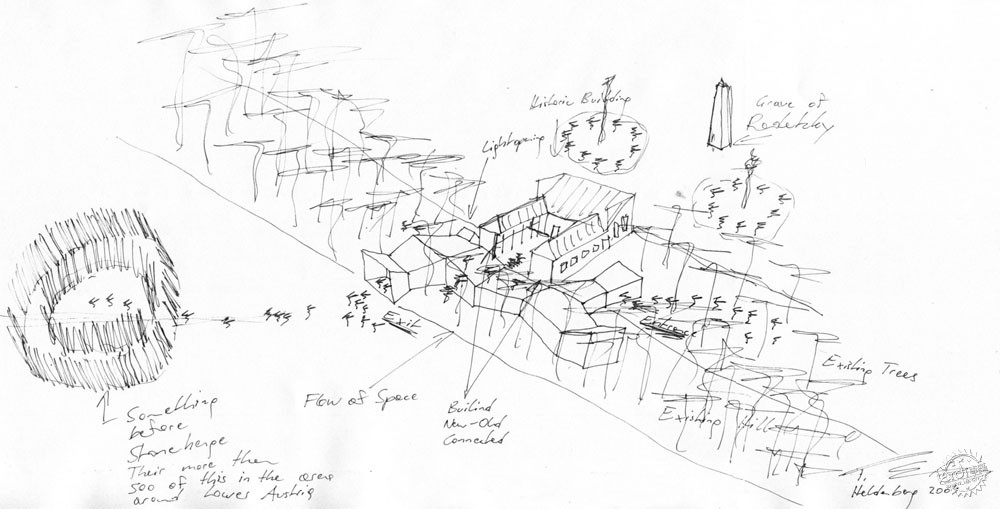 Historic Building
Grave of
Radetzky
Lightopening
Exit
Entrance
Existing Trees
Existing Hill
Flow of Space
Builind
New-Old
Connected
Something
before
Stonehenge
Their more then
500 of this in the area
around Lower Austria
Heldenberg 2003